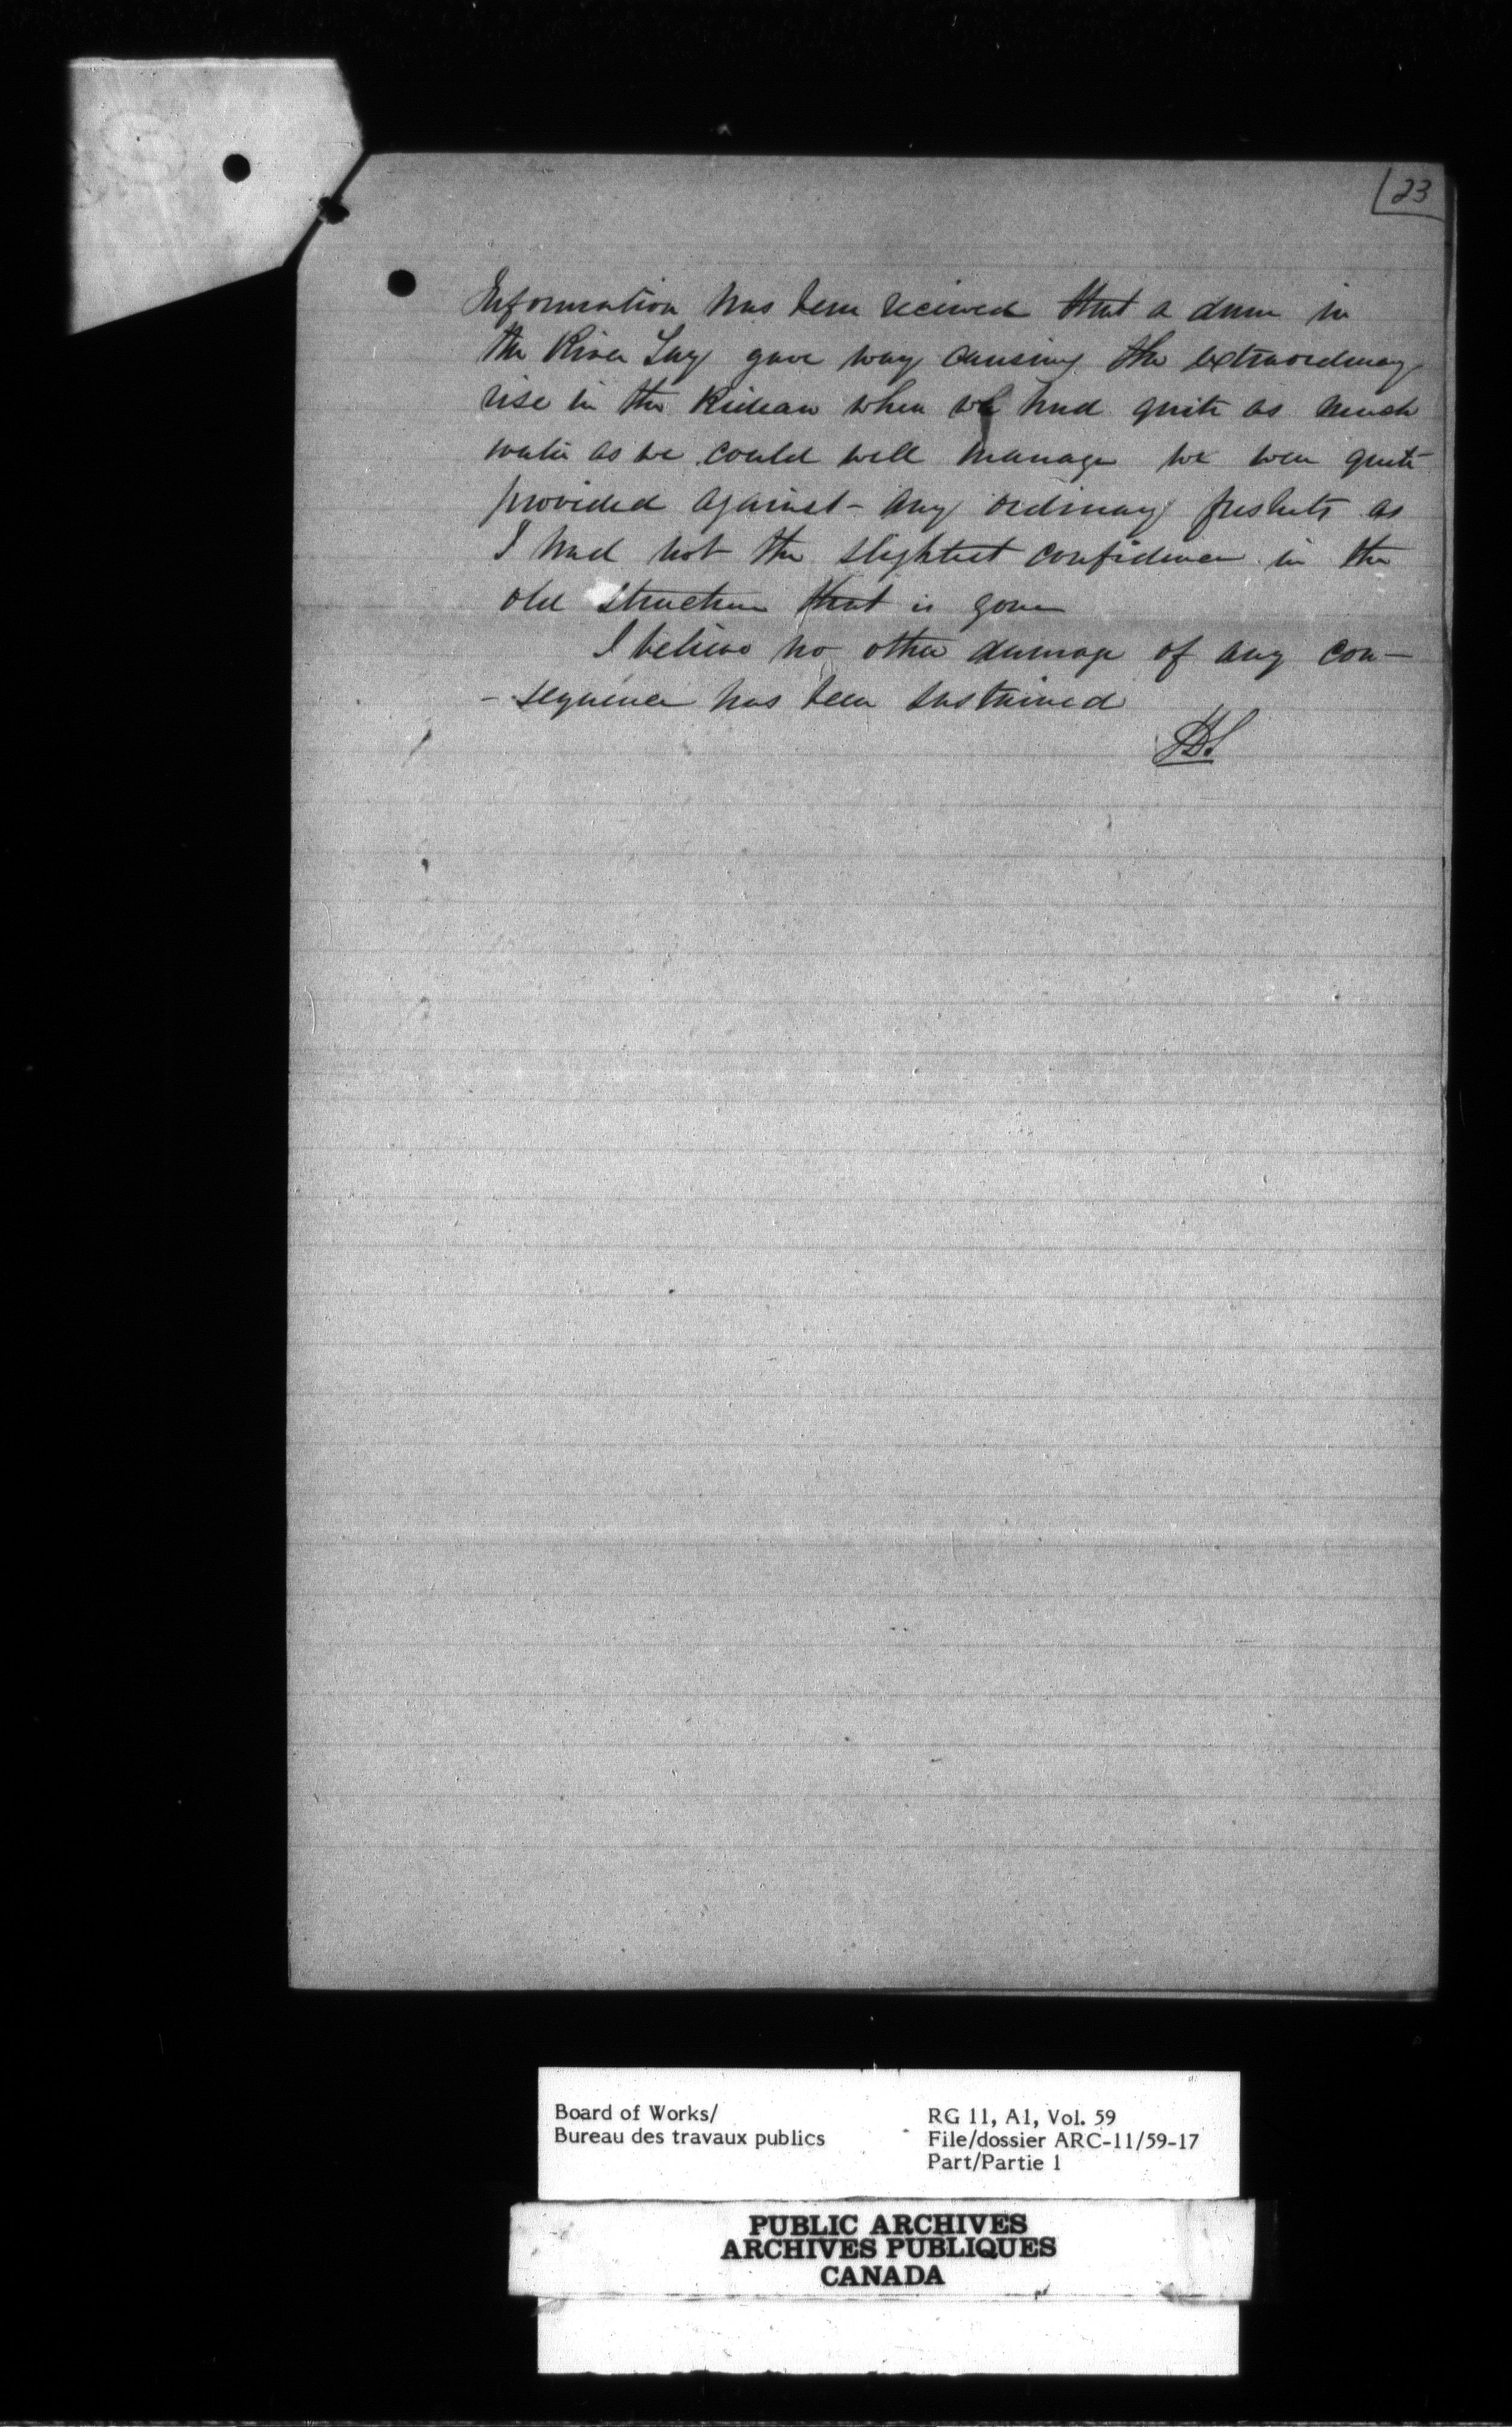 23
Information has been received that a dam in
the River Tay gave way causing the extraordinary
rise in the Rideau when we had quite as much
water as we could well manage we were quite
provided against - any ordinary freshets as
I had not the slightest confidence in the
old structure that is gone
I believe no other damage of any con-
- sequence has been sustained
Board of Works/
Bureau des travaux publics
RG 11, A1, Vol. 59
File/dossier ARC-11/59-17
Part/Partie 1
PUBLIC ARCHIVES
ARCHIVES PUBLIQUES
CANADA